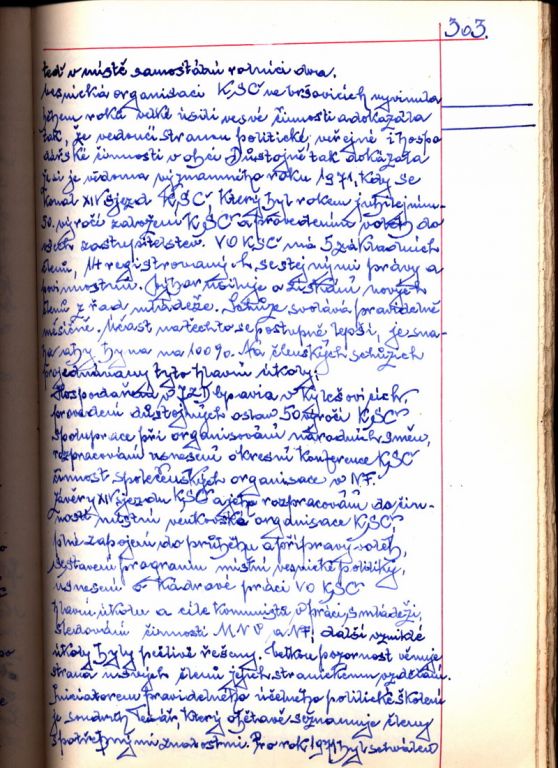 303.
teď v místě samostatní rolníci dva.
Vesnická organisaci KSČ ve Vršovicích vyvinula
během roku velké úsilí ve své činnosti a dokázala
tak, že vedoucí stranou politické, veřejné i hospo
dářské činnosti v obci. Důstojně tak dokázala
že si je vědoma významného roku 1971, kdy se
konal XIV sjezd KSČ. Který byl rokem jubilejním
50. výročí založení KSČ a provedením voleb do
všech zastupitelstev. VO KSČ má 5 základních
členů, 14 registrovaných, se stejnými právy a
povinnostmi. Výbor usiluje o získání nových
členů z řad mládeže. Schůze svolává pravidelně
měsíčně. Účast na těchto se postupně lepší, je sna-
ha aby byla na 100%. Na členských schůzích
projednávány byly tyto hlavní úkoly:
Hospodaření v JZD Opavia v Kylešovicích,
provedení důstojných oslav 50 výročí KSČ
spolupráce při organisování národních směn,
rozpracování usnesení okresní konference KSČ
činnost společenských organisace v NF.
Závěry XIV sjezdu KSČ a jeho rozpracování do čin-
nosti místní venkovské organisace KSČ
plné zapojení do průběhu a přípravy voleb,
sestavení programu místní vesnické politiky,
usnesení o kádrové práci VO KSČ
hlavní úkolu a cíle komunistů v práci s mládeží,
sledování činnosti MNV a NF, další vzniklé
úkoly byly pečlivě řešeny. Velkou pozornost věnuje
strana u svých členů jejich stranickému vzdělání.
Iniciátorem pravidelného účelného politické školení
je soudruh, který obětavě seznamuje členy
s potřebnými znalostmi. Pro rok 1971 byl schválen